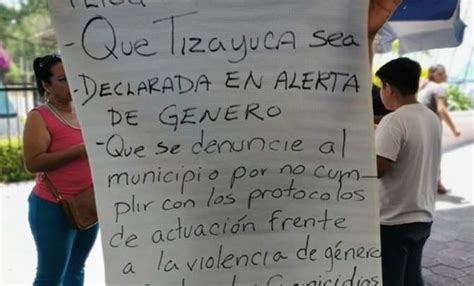 - Que TIZAYUCA sea
- DECLARADA EN ALERTA
DE GENERO
- Que se denuncie al
municipio por no cum_
plir con los protocolos
de actuación frente
a la violencia de género